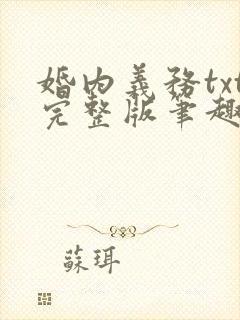 婚内義務txt
完整版筆趣
蘇珥